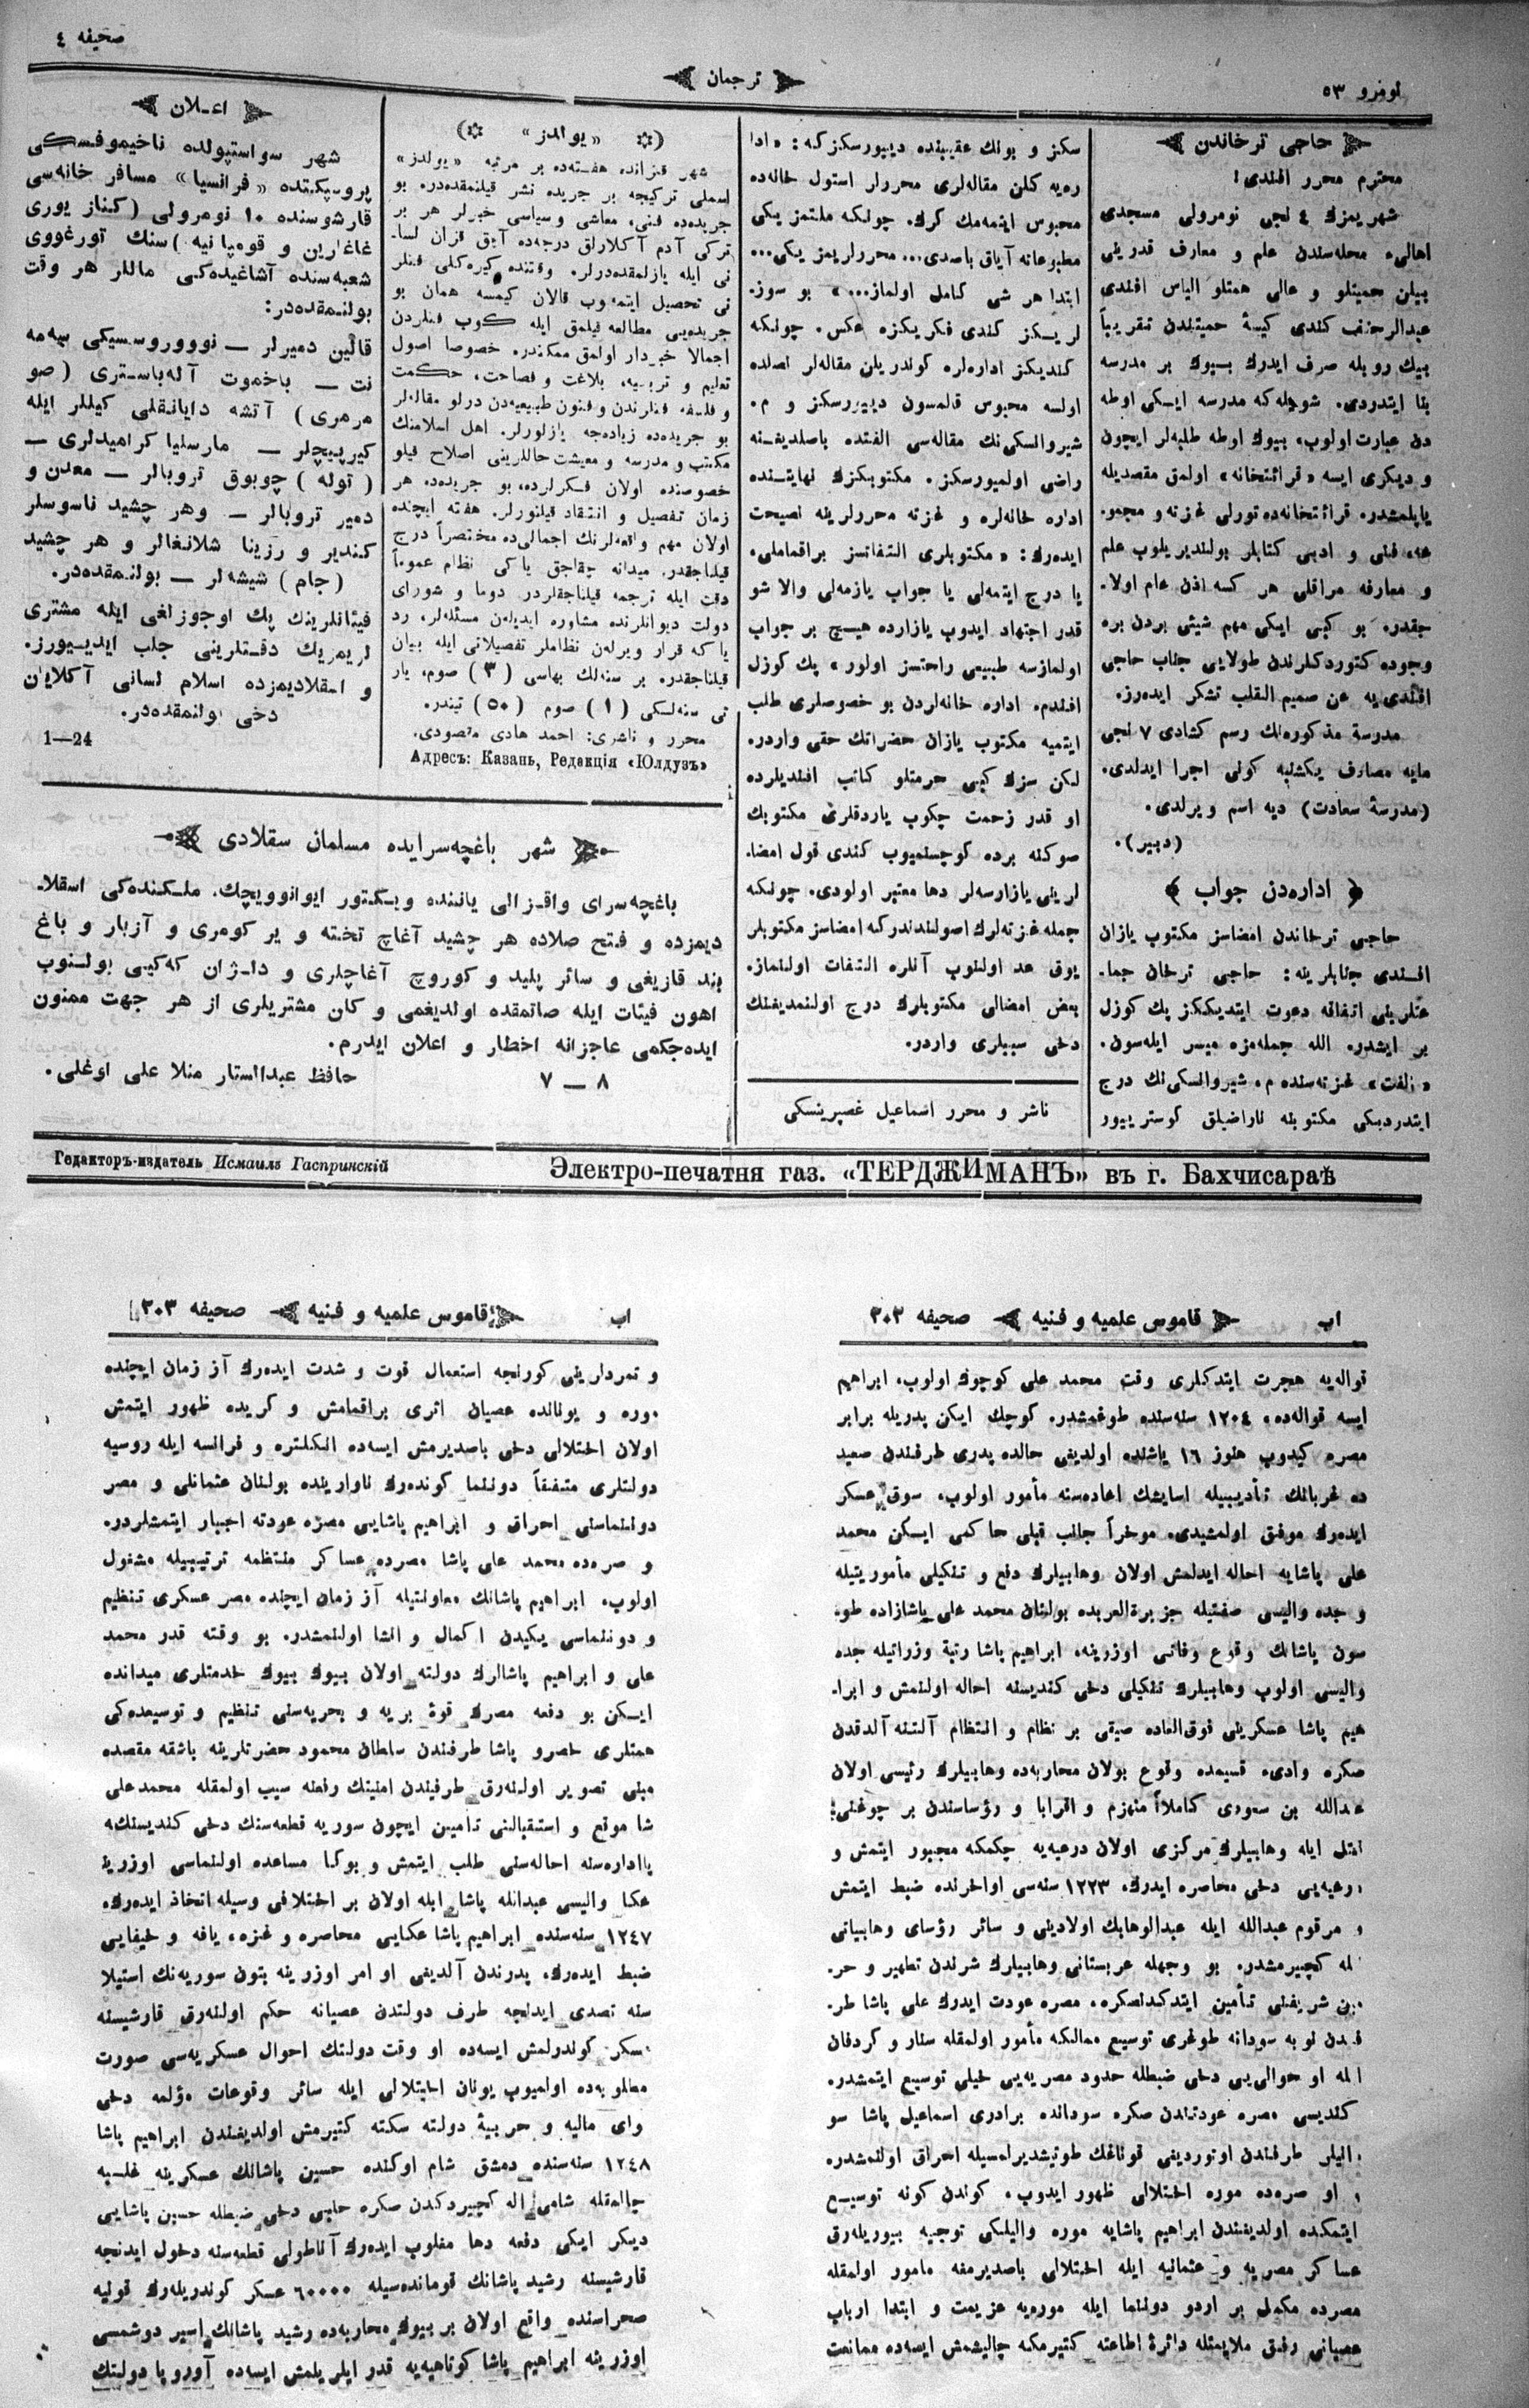 نومرو ٥٣
ترجمان
صحیفه ٤
حاجی ترخاندن
محترم محرر افندی!
شهریمزك ٤ نجی نومرولی مسجدی
اهالیء محله‌سندن علم و معارف قدرینی
بیلن حمیتلو و عالی همتلو الیاس افندی
عبدالرحنف کندی کیسهٔ حمیتندن تقریباً
بیك روبله صرف ایدرك بیوك بر مدرسه
بنا ایتدردی. شویله‌که مدرسه ایکی اوطه
دن عبارت اولوب، بیوك اوطه طلبه‌لر ایچون
و دیکری ایسه «قرائتخانه» اولمق مقصدیله
یاپلمشدر. قرائتخانه‌ده تورلی غزته و مجمو.
عه، فنی و ادبی کتابلر بولندیریلوب علم
و معارفه مراقلی هر کسه اذن عام اولا.
جقدر. بو کبی ایکی مهم شیئی بردن بره
وجوده کتوردکلرندن طولایی جناب حاجی
افندی‌یه عن صمیم القلب تشکر ایده‌رز.
مدرسهٔ مذکوره‌نك رسم کشادی ٧ نجی
مایه مصادف یکشنبه کونی اجرا ایدلدی.
(مدرسهٔ سعادت) دیه اسم ویرلدی.
(دبیر).
اداره‌دن جواب
حاجی ترخاندن امضاسز مکتوب یازان
افندی جنابلرینه: حاجی ترخان جما.
عتلرینی اتفاقه دعوت ایتدیککز پك کوزل
بر ایشدر. الله جمله‌مزه میسر ایله‌سون.
«الفت» غزته‌سنده م. شیروانسکی‌نك درج
ایتدردیکی مکتوبنه ناراضیلق کوستریيور
سکز و بونك عقیبنده دیيورسکزکه: «ادا
ره‌یه کلن مقاله‌لری محررلر استول خانه‌ده
محبوس ایتمه‌مك کرك. چونکه ملتمز یکی
مطبوعاته آیاق باصدی... محررلریمز یکی...
ابتدا هر شی کامل اولماز...» بو سوز.
لریکز کندی فکریکزه عکس. چونکه
کندیکز اداره‌لره کوندریلن مقاله‌لر اصلده
اولسه محبوس قالمسون دیيورسکز و م.
شیروانسکی‌نك مقاله‌سی الفتده باصلدیغنه
راضی اولمیورسکز. مکتوبکزك نهایتنده
اداره خانه‌لره و غزته محررلرینه نصیحت
ایده‌رك: «مکتوبلری التفاتسز براقماملی،
یا درج ایتمه‌لی یا جواب یازمه‌لی والا شو
قدر اجتهاد ایدوب یازارده هیچ بر جواب
اولمازسه طبیعی راحتسز اولور» پك کوزل
افندم، اداره خانه‌لردن بو خصوصلری طلب
ایتمیه مکتوب یازان حضراتك حقی واردر.
لکن سزك کبی حرمتلو کاتب افندیلرده
او قدر زحمت چکوب یازدقلری مکتوبك
صوکنه برده کوجسنمیوب کندی قول امضا.
لرینی یازارسه‌لر دها معتبر اولودی. چونکه
جمله غزته‌لرك اصولندندرکه امضاسز مکتوبلر
یوق عد اولنوب آنلره التفات اولنماز.
بعض امضالی مکتوبلرك درج اولنمدیغنك
دخی سببلری واردر.
ناشر و محرر اسماعیل غصپرینسکی
«یولدز»
شهر قزانده هفته‌ده بر مرتبه «یولدز»
اسملی ترکیجه بر جریده نشر قیلنمقده‌در. بو
جریده‌ده فنی، معاشی و سیاسی خبرلر هر بر
ترکی آدم آکلارلق درجه‌ده آچق قزان لسا.
نی ایله یازلمقده‌درلر. وقتنده کیره‌کلی فنلر
نی تحصیل ایتمه‌یوب قالان کیمسه همان بو
جریده‌یی مطالعه قیلمق ایله کوب فنلردن
اجمالا خبردار اولمق ممکندر. خصوصا اصول
تعلیم و تربیه، بلاغت و فصاحت، حکمت
و فلسفه فنلرندن و فنون طبیعیه‌دن درلو مقاله‌لر
بو جریده‌ده زیاده‌جه یازلورلر. اهل اسلامنك
مکتب و مدرسه و معیشت حاللرینی اصلاح قیلو
خصوصنده اولان فکرلرده، بو جریده‌ده هر
زمان تفصیل و انتقاد قیلنورلر. هفته ایچنده
اولان مهم واقعه‌لرنك اجمالی‌ده مختصراً درج
قیلناجقدر. میدانه چقاجق یاکی نظام عموماً
دقت ایله ترجمه قیلناجقلردر. دوما و شورای
دولت دیوانلرنده مشاوره ایدیله‌ن مسئله‌لر، رد
یا که قرار ویرله‌ن نظاملر تفصیلاتی ایله بیان
قیلناجقدر. بر سنه‌لك بهاسی (٣) صوم، یار
تی سنه‌لکی (١) صوم (٥٠) تیندر.
محرر و ناشری: احمد هادی مقصودی.
Адресъ: Казань, Редакція «Юлдузъ»
اعلان
شهر سواستپولده ناخیموفسکی
پروسپکتده «فرانسیا» مسافر خانه‌سی
قارشوسنده ١٠ نومرولی (کناز یوری
غاغارین و قومپانیه) سنك تورغووی
شعبه‌سنده آشاغیده‌کی ماللر هر وقت
بولنمقده‌در:
قالین دمیرلر — نوووروسسیکی سه‌مه
نت — باخموت آله‌باستری (صو
مرمری) آتشه دایانقلی کیللر ایله
کیرپیچلر — مارسلیا کرامیدلری —
(توله) چویوق تروبالر — معدن و
دمیر تروبالر — وهر چشید ناسوسلر
کندیر و رزینا شلانغالر و هر چشید
(جام) شیشه‌لر — بولنمقده‌در.
فیئاتلرینك پك اوجوزلغی ایله مشتری
لریمزیك دقتلرینی جلب ایدییورز.
و اسقلادیمزده اسلام لسانی آکلایان
دخی بولنمقده‌در.
1—24
شهر باغچه‌سرایده مسلمان سقلادی
باغچه‌سرای واقزالی یاننده ویکتور ایوانوویچك. ملکنده‌کی اسقلا.
دیمزده و فتح صلاده هر چشید آغاچ تخته و یر کومری و آزبار و باغ
بند قازیغی و سائر پلید و کوروچ آغاچلری و دلژان که‌کیی بولنوب
اهون فیئات ایله صاتمقده اولدیغمی و کان مشتریلری از هر جهت ممنون
ایده‌جکمی عاجزانه اخطار و اعلان ایدرم.
٨ — ٧ حافظ عبدالستار منلا علی اوغلی.
Редакторъ-издатель Исмаилъ Гаспринскій
Электро-печатня газ. «ТЕРДЖИМАНЪ» въ г. Бахчисараѣ
اب قاموس علمیه و فنیه صحیفه ٣٠٢
قواله‌یه هجرت ایتدکلری وقت محمد علی کوچوك اولوب، ابراهیم
ایسه قواله‌ده، ١٢٠٤ سنه‌سنده طوغمشدر. کوچك ایکن پدریله برابر
مصره کیدوب هنوز ١٦ یاشنده اولدیغی حالده پدری طرفندن صعید
ده عربانك تأدیبیله اسایشك اعاده‌سنه مأمور اولوب، سوق عسکر
ایده‌رك موفق اولمشیدی. موخراً جانب قبلی حاکمی ایکن محمد
علی پاشایه احاله ایدلمش اولان وهابیلرك دفع و تنکیلی مأموریتیله
و جده والیسی صفتیله جزیرةالعربده بولنان محمد علی پاشازاده طو.
سون پاشانك وقوع وفاتی اوزرینه، ابراهیم پاشا رتبهٔ وزراتیله جده
والیسی اولوب وهابیلرك تنکیلی دخی کندیسنه احاله اولنمش و ابرا.
هیم پاشا عسکرینی فوق‌العاده صیقی بر نظام و انتظام آلتنه آلدقدن
صکره وادیء قسیمده وقوع بولان محاربه‌ده وهابیلرك رئیسی اولان
عبدالله بن سعودی کاملاً منهزم و اقربا و رؤساسندن بر چوغنی
قتل ایله وهابیلرك مرکزی اولان درعیه‌یه چکمکه مجبور ایتمش و
درعیه‌یی دخی محاصره ایدرك، ١٢٣٣ سنه‌سی اواخرنده ضبط ایتمش
و مرقوم عبدالله ایله عبدالوهابك اولادینی و سائر رؤسای وهابیانی
اله کچیرمشدر. بو وجهله عربستانی وهابیلرك شرندن تطهیر و حر.
مین شریفینی تأمین ایتدکدنصکره، مصره عودت ایدرك علی پاشا طر.
فندن نوبه سودانه طوغری توسیع ممالکه مأمور اولمقله سنار و کردفان
ایله او حوالی‌یی دخی ضبطله حدود مصریه‌یی خیلی توسیع ایتمشدر.
کندیسی مصره عودتندن صکره سودانده برادری اسماعیل پاشا سو
دانلیلر طرفندن اوتوردیغی قوناغك طوتیشدیرلمسیله احراق اولنمشدر.
و او صره‌ده موره اختلالی ظهور ایدوب، کوندن کونه توسیع
ایتمکده اولدیغندن ابراهیم پاشایه موره والیلکی توجیه بیوریله‌رق
عساکر مصریه و عثمانیه ایله اختلالی باصدیرمغه مامور اولمقله
مصرده مکمل بر اردو دوننما ایله موره‌یه عزیمت و ابتدا ارباب
عصیانی رفق ملایمتله دائرهٔ اطاعته کتیرمکه چالیشمش ایسه‌ده ممانعت
اب قاموس علمیه و فنیه صحیفه ٣٠٣
و تمردارینی کورنجه استعمال قوت و شدت ایده‌رك آز زمان ایچنده
موره و یونانده عصیان اثری براقمامش و کریده ظهور ایتمش
اولان اختلالی دخی باصدیرمش ایسه‌ده انکلتره و فرانسه ایله روسیه
دولتلری متفقاً دوننما کونده‌رك ناوارینده بولنان عثمانلی و مصر
دوننماسنی احراق و ابراهیم پاشایی مصره عودته اجبار ایتمشلردر.
و صره‌ده محمد علی پاشا مصرده عساکر منتظمه ترتیبیله مشغول
اولوب، ابراهیم پاشانك معاونتیله آز زمان ایچنده مصر عسکری تنظیم
و دوننماسی یکیدن اکمال و انشا اولنمشدر. بو وقته قدر محمد
علی و ابراهیم پاشالرك دولته اولان بیوك بیوك خدمتلری میدانده
ایکن بو دفعه مصرك قوهٔ بریه و بحریه‌سنی تنظیم و توسیعده‌کی
همتلری خصرو پاشا طرفندن سلطان محمود حضرتلرینه باشقه مقصده
مبنی تصویر اولنه‌رق طرفیندن امنیتك رفعنه سبب اولمقله محمدعلی
شا موقع و استقبالنی تامین ایچون سوریه قطعه‌سنك دخی کندیسنك
اداره‌سنه احاله‌سنی طلب ایتمش و بوکا مساعده اولنماسی اوزرینه
عکا والیسی عبدالله پاشا ایله اولان بر اختلافی وسیله اتخاذ ایده‌رك،
١٢٤٧ سنه‌سنده ابراهیم پاشا عکایی محاصره و غزه، یافه و خیفایی
ضبط ایده‌رك، پدرندن آلدیغی او امر اوزرینه بتون سوریه‌نك استیلا
سنه تصدی ایدنجه طرف دولتدن عصیانه حکم اولنه‌رق قارشیسنه
عسکر کوندرلمش ایسه‌ده او وقت دولتك احوال عسکریه‌سی صورت
مطلوبه‌ده اولمیوب یونان اختلالی ایله سائر وقوعات مؤلمه دخی
قوای مالیه و حربیهٔ دولته سکته کتیرمش اولدیغندن ابراهیم پاشا
١٢٤٨ سنه‌سنده دمشق شام اوکنده حسین پاشانك عسکرینه غلبه
چالمقله شامی اله کچیردکدن صکره حلبی دخی ضبطله حسین پاشایی
دیکر ایکی دفعه دها مغلوب ایده‌رك آناطولی قطعه‌سنه دخول ایدنجه
قارشیسنه رشید پاشانك قومانده‌سیله ٦٠٠٠٠ عسکر کوندریله‌رك قونیه
صحراسنده واقع اولان بر بیوك محاربه‌ده رشید پاشانك اسیر دوشمسی
اوزرینه ابراهیم پاشا کوتاهیه‌یه قدر ایلریلمش ایسه‌ده آوروپا دولتك